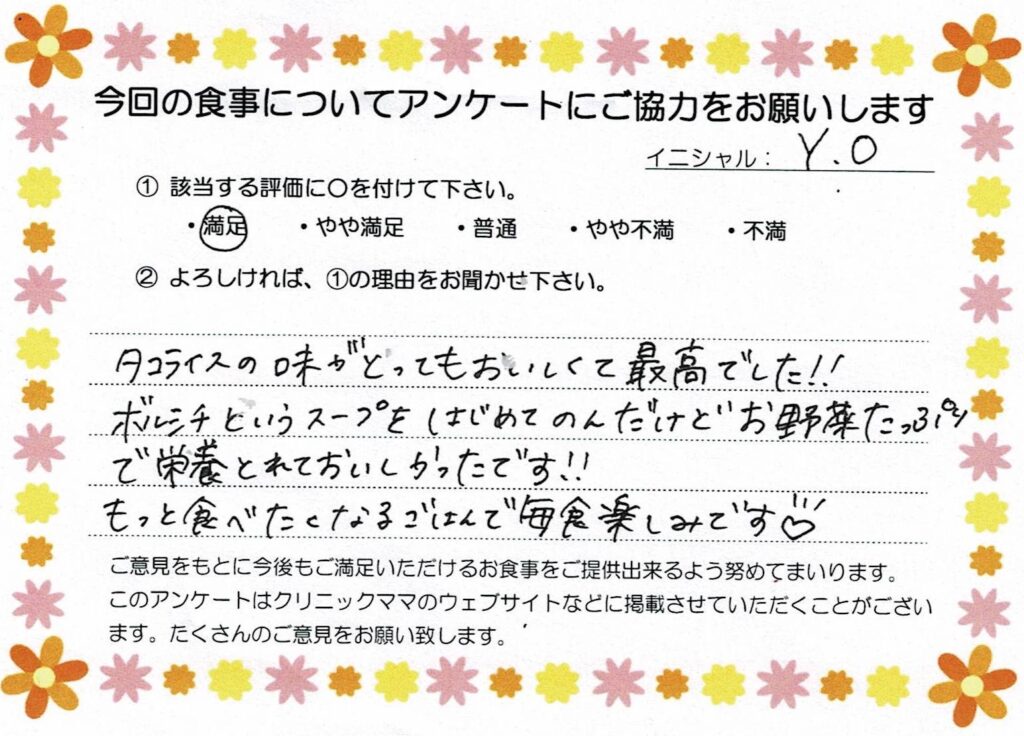 今回の食事についてアンケートにご協力をお願いします
イニシャル： Y.O
① 該当する評価に〇を付けて下さい。
・満足 ・やや満足 ・普通 ・やや不満 ・不満
② よろしければ、①の理由をお聞かせ下さい。
タコライスの味がとってもおいしくて最高でした!!
ボルシチというスープをはじめてのんだけどお野菜たっぷり
で栄養とれておいしかったです!!
もっと食べたくなるごはんで毎食楽しみです♡
ご意見をもとに今後もご満足いただけるお食事をご提供出来るよう努めてまいります。
このアンケートはクリニックママのウェブサイトなどに掲載させていただくことがござい
ます。たくさんのご意見をお願い致します。